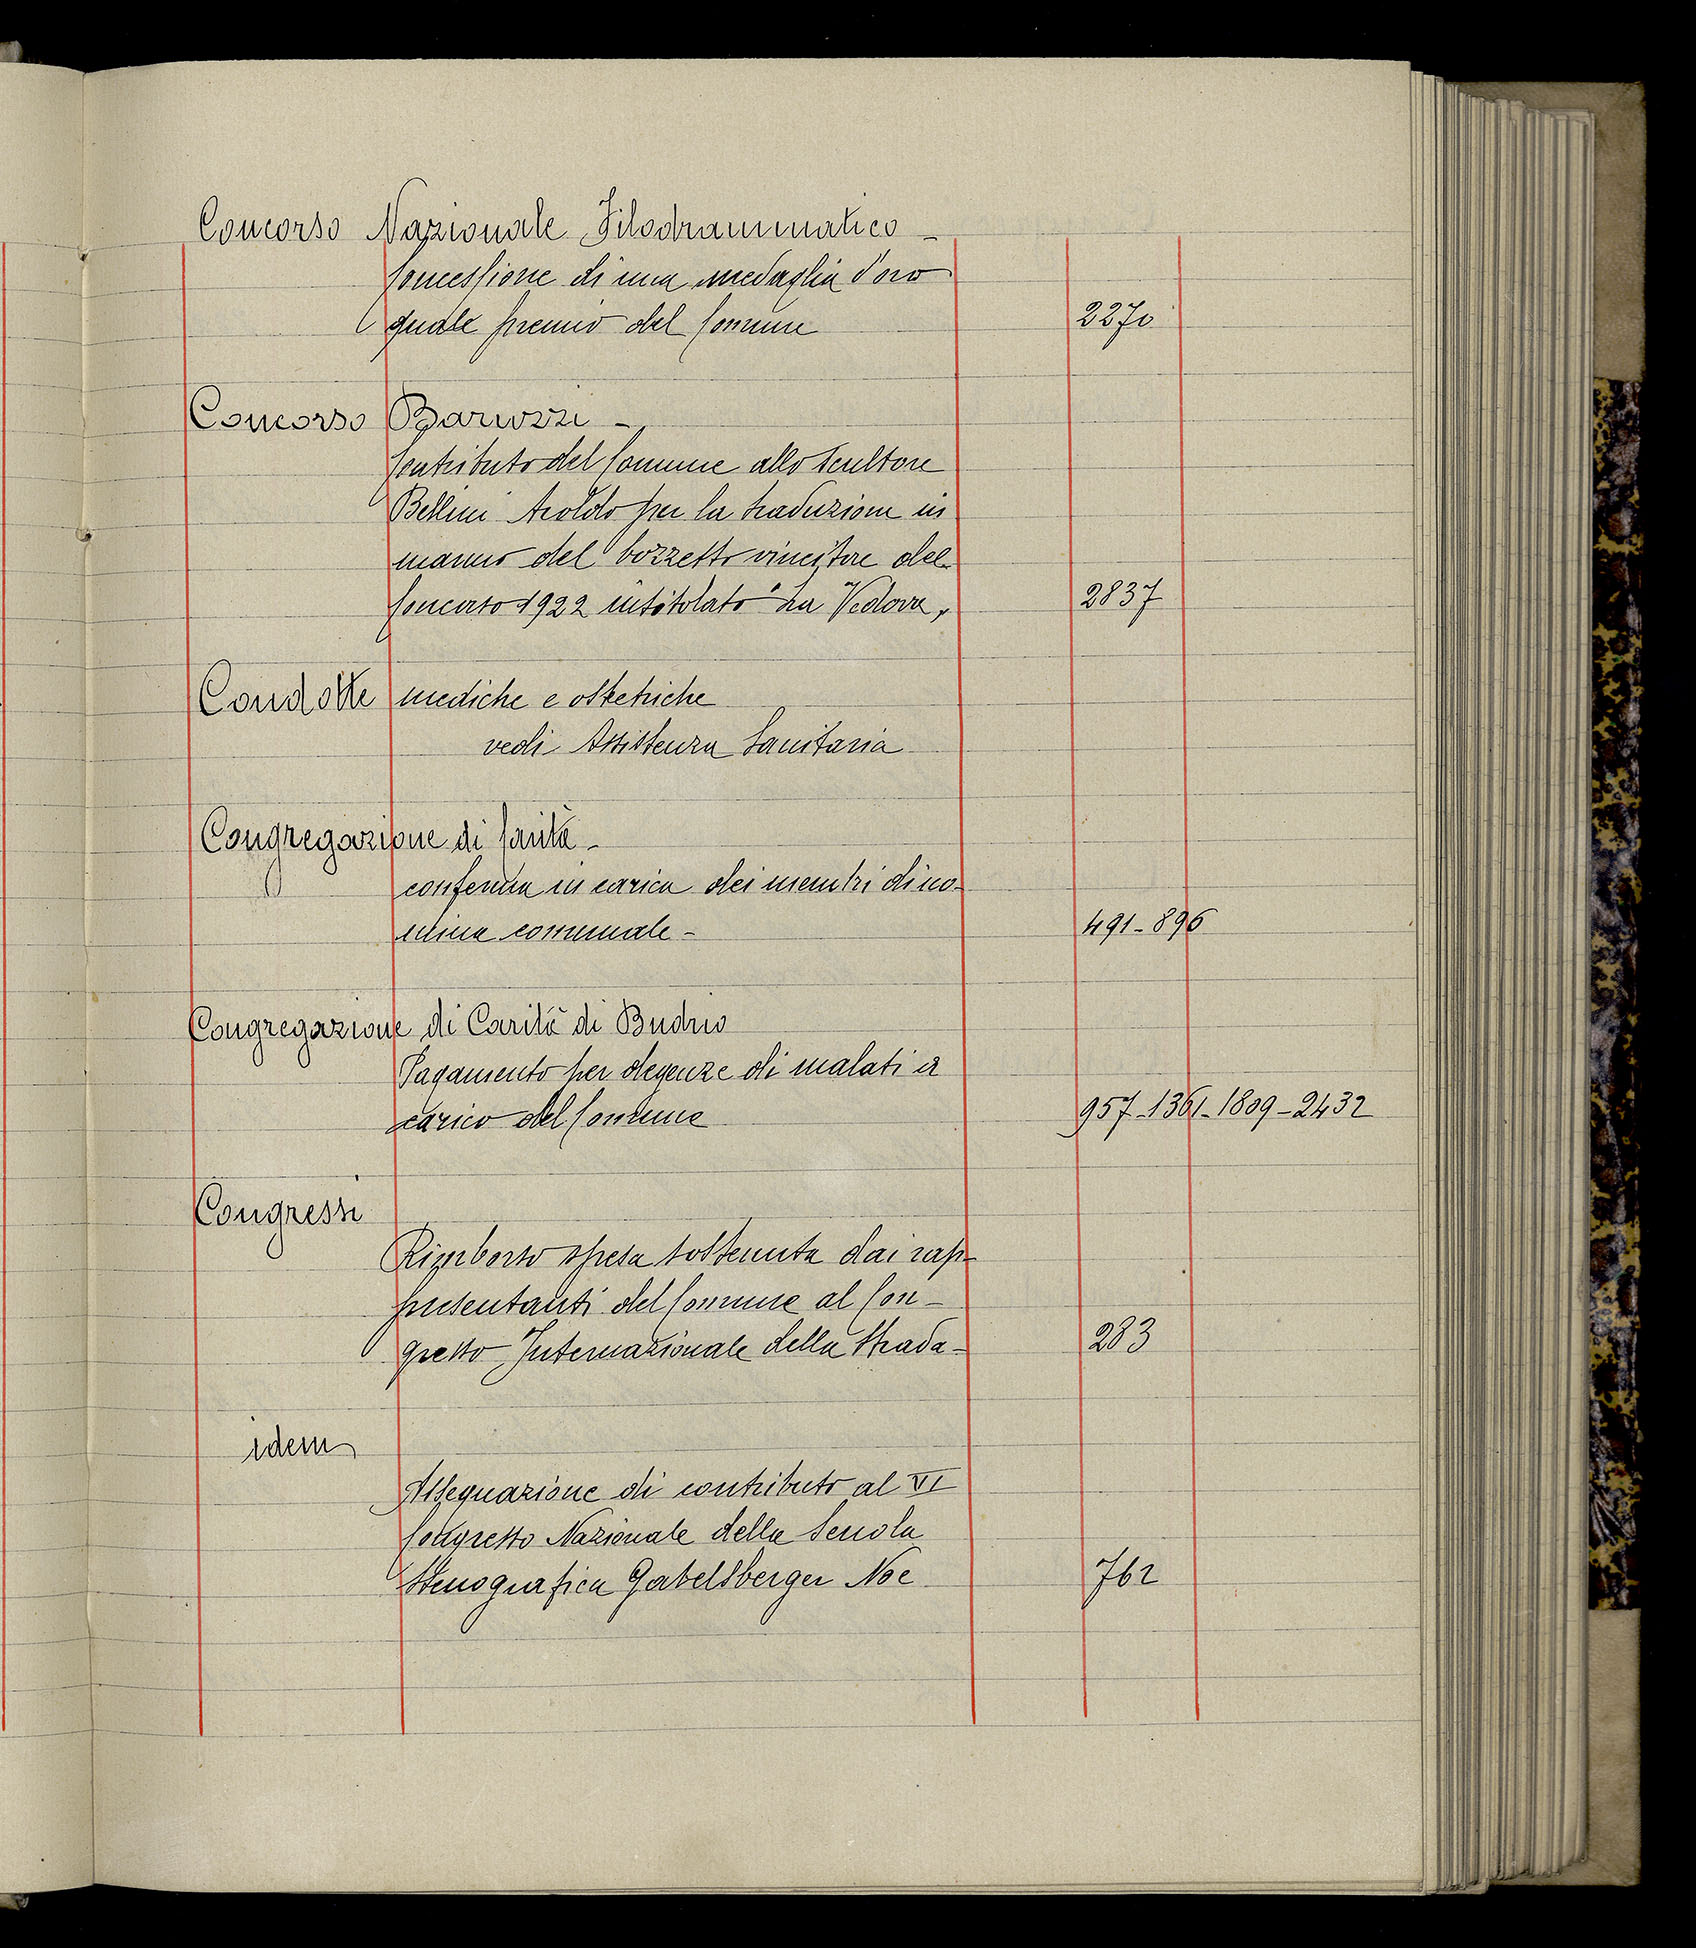 Concorso Nazionale Filodrammatico -
Concessione di una medaglia d'oro
quale premio del Comune 2270
Concorso Baruzzi -
Contributo del Comune allo Scultore
Bellini Aroldo per la traduzione in
marmo del bozzetto vincitore del
Concorso 1922 intitolato "La Vedova„ 2837
Condotte mediche e ostetriche
vedi Assistenza Sanitaria
Congregazione di Carità -
conferma in carica dei membri di no-
mina comunale - 491-896
Congregazione di Carità di Budrio
Pagamento per degenze di malati a
carico del Comune 957-1361-1809-2432
Congressi
Rimborso spesa sostenuta dai rap-
presentanti del Comune al Con-
gresso Internazionale della Strada- 283
idem
Assegnazione di contributo al VI
Congresso Nazionale della Scuola
Stenografica Gabelsberger Noe 762